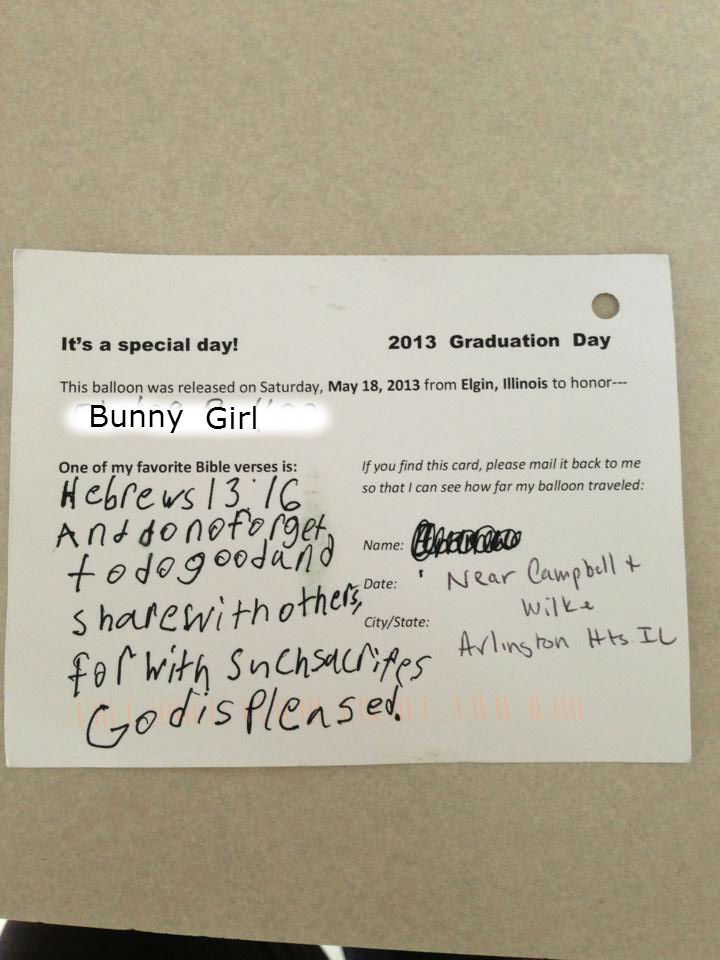 It's a special day!
2013 Graduation Day
This balloon was released on Saturday, May 18, 2013 from Elgin, Illinois to honor---
Bunny Girl
One of my favorite Bible verses is:
Hebrews 13:16
And do not forget
to do good and
share with others,
for with such sacrifes
God is pleased.
If you find this card, please mail it back to me
so that I can see how far my balloon traveled:
Name:
Date:
Near Campbell +
Wilke
City/State:
Arlington Hts IL